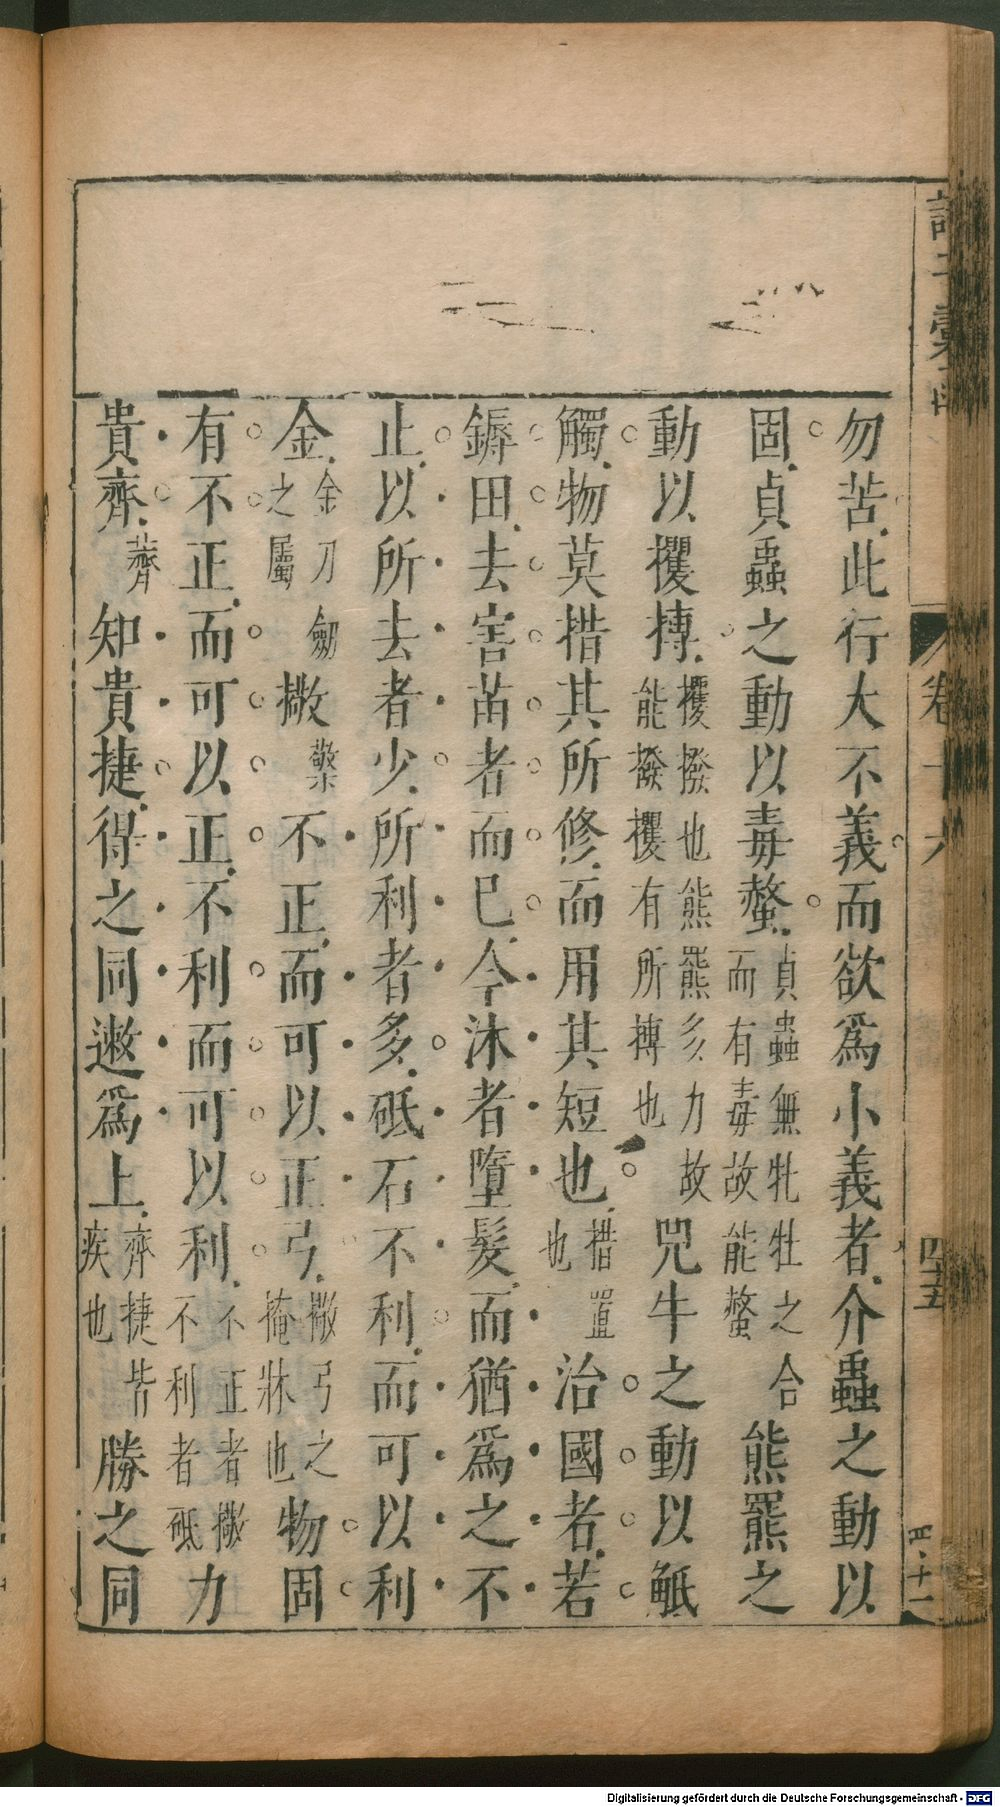 勿苦此行大不義而欲爲小義者介蟲之動以
固貞蟲之動以毒螫貞蟲無牝牡之合而有毒故能螫熊羆之
動以攫搏攫撥也熊羆多力故能撥攫有所搏也兕牛之動以觝
觸物莫措其所修而用其短也措置也治國者若
鎒田去害苗者而已今沐者墮髮而猶爲之不
止以所去者少所利者多砥石不利而可以利
金金刀劒之屬撒檠不正而可以正弓撒弓之掩牀也物固
有不正而可以正不利而可以利不正者撒不利者砥力
貴齊薺知貴捷得之同遫爲上齊捷皆疾也勝之同
四五
Digitalisierung gefördert durch die Deutsche Forschungsgemeinschaft - DFG